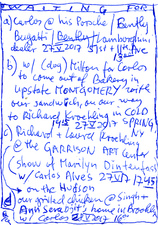 WAITING FOR
a) carlos @ his Porsche / Bently
Bugatti / Bently / Lamborghini
dealer 27 V 2017 51st + 11th Ave
b) w/ (dog) Milton for Carlos
to come out of Bakery in
upstate MONTGOMERY with
our sandwich, on our way
to Richard Kroehling in COLD
SPRING 27 V 2017 NY
c) Richard + Laurie Kroehling
@ the GARRISON ART Center
(show of Marilyn Dintenfass)
w/ Carlos Alves 27 V 1745
on the Hudson
our grilled chicken @ Singh +
home in Brookly
w/ Carlos 27 V 2017